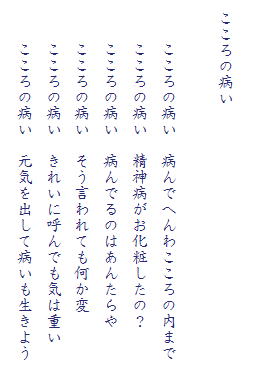 こころの病い
こころの病い　病んでへんわこころの内まで
こころの病い　精神病がお化粧したの？
こころの病い　病んでるのはあんたらや
こころの病い　そう言われても何か変
こころの病い　きれいに呼んでも気は重い
こころの病い　元気を出して病いも生きよう